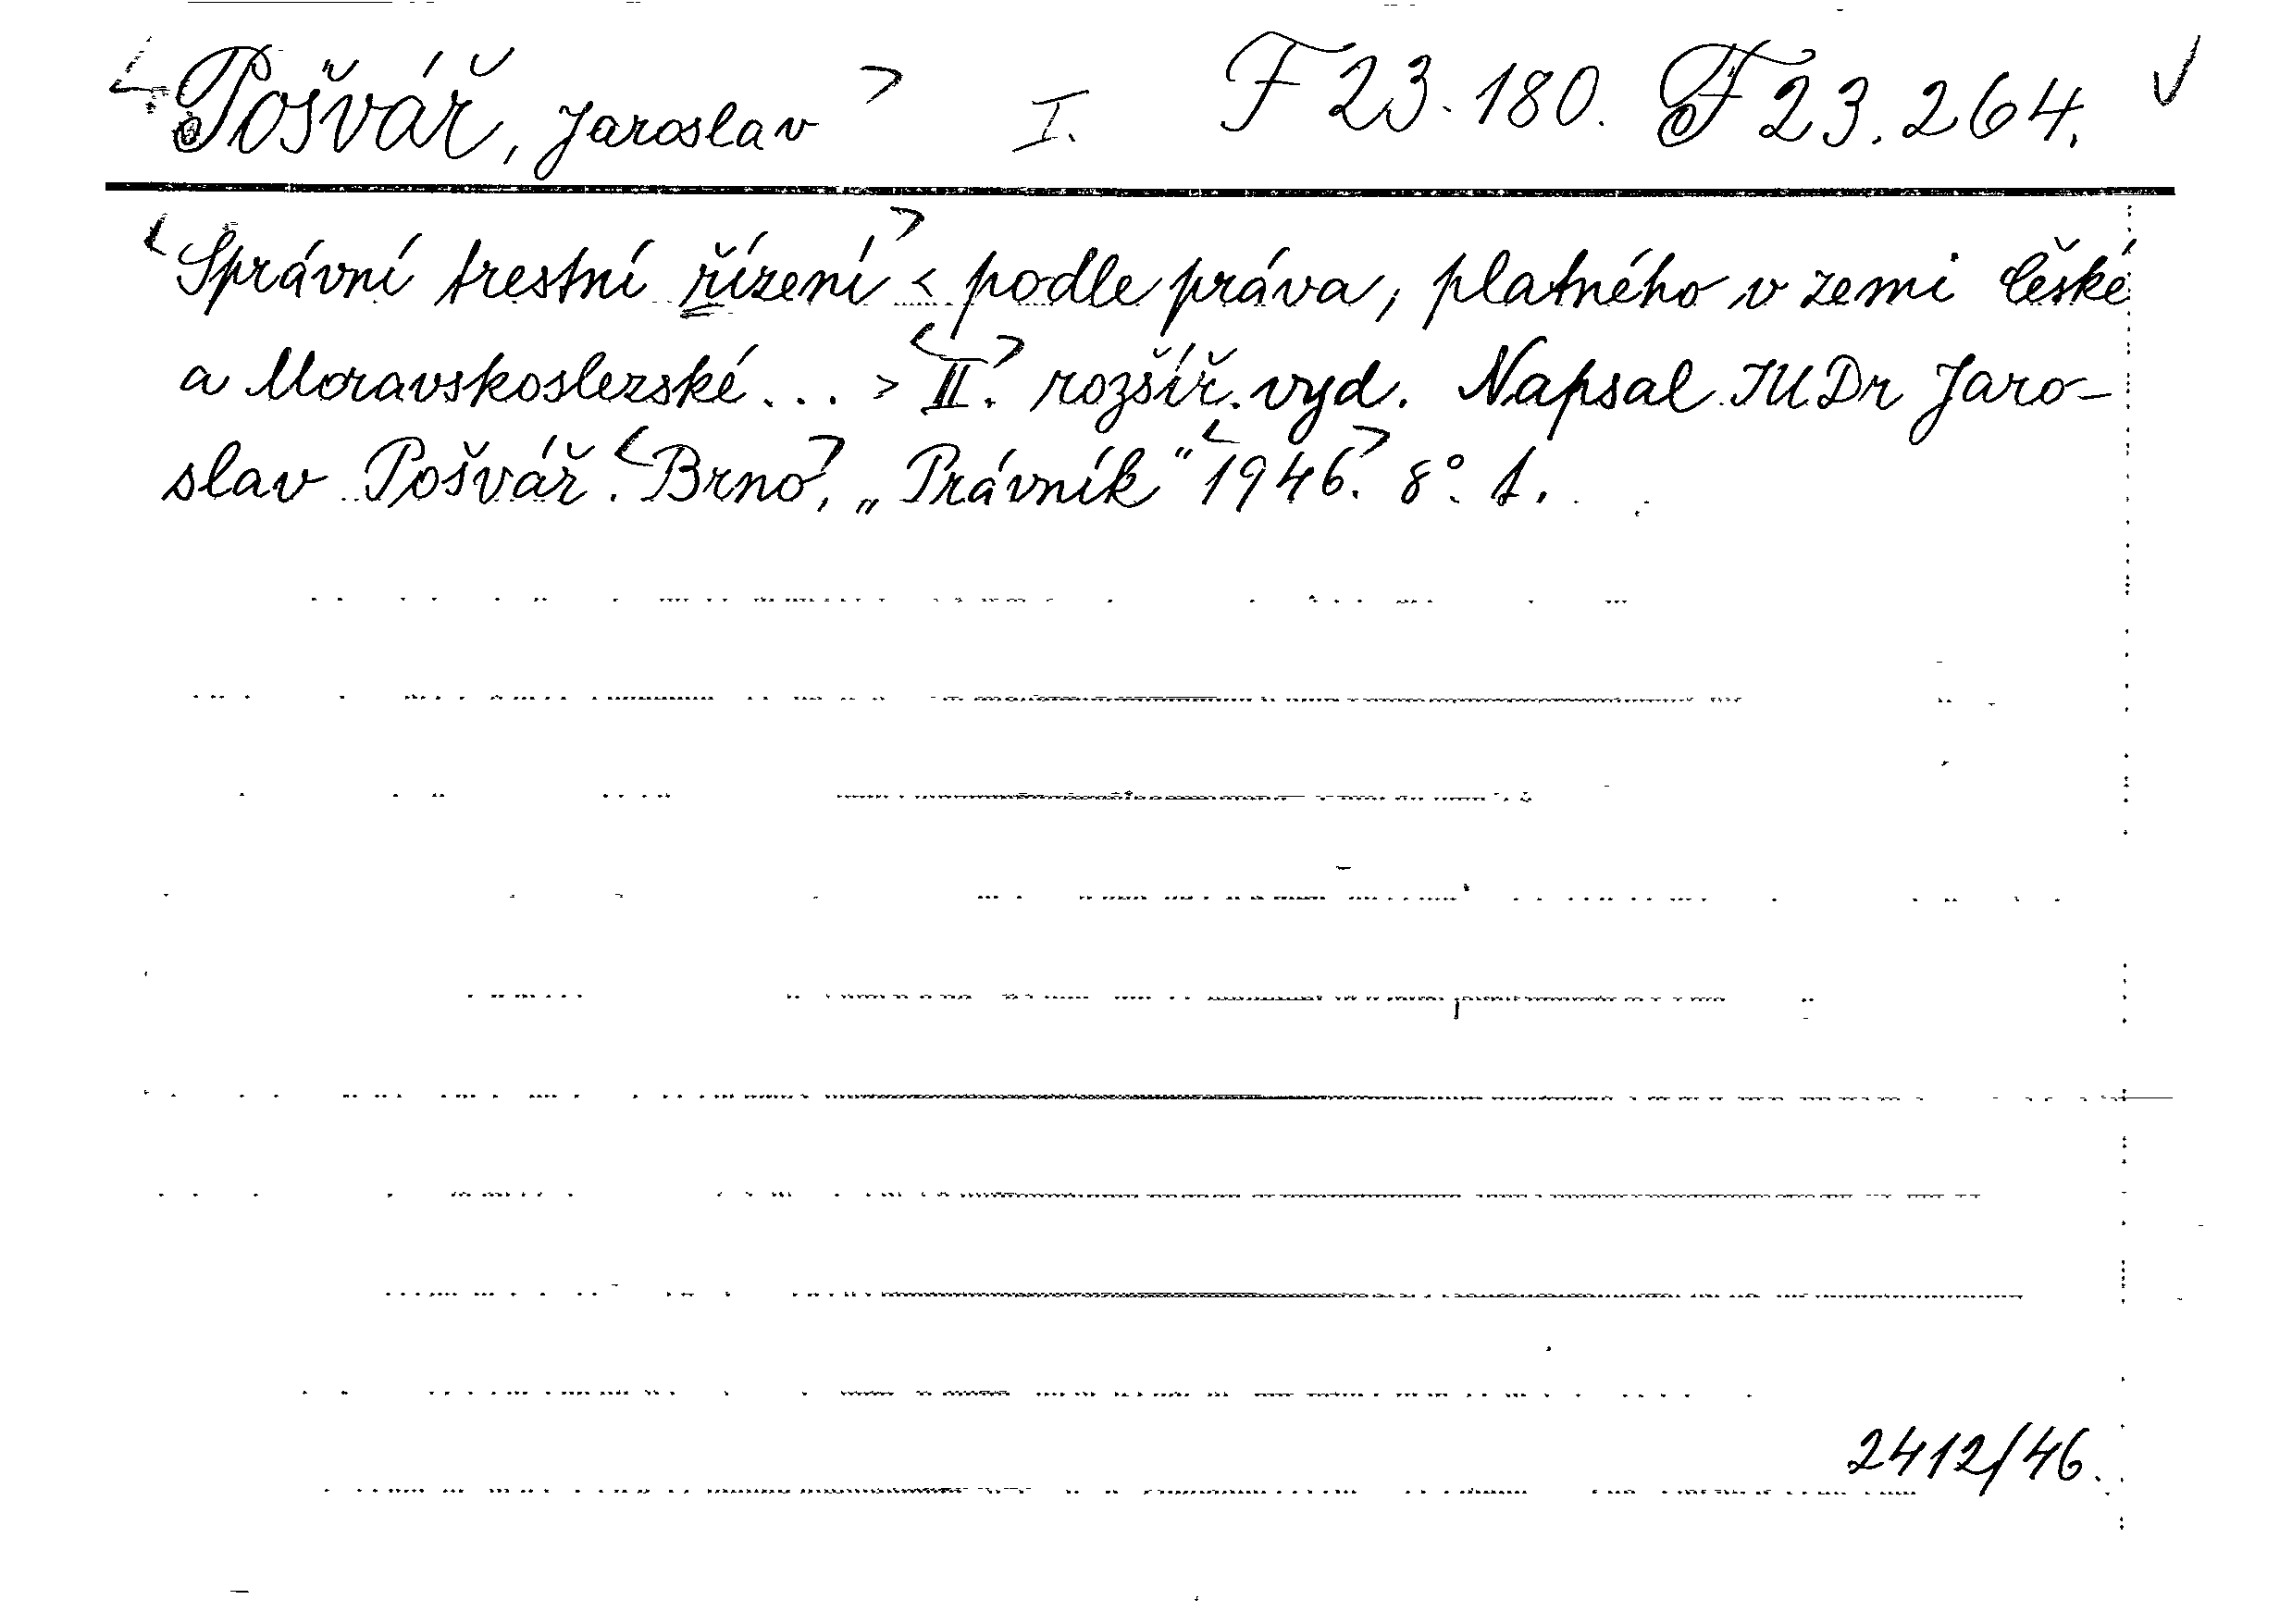 <Pošvář, Jaroslav> I. F 23.180. F 23.264. ✓
<Správní trestní řízení> < podle práva, platného v zemi České
a Moravskoslezské... > <II.> rozšíř. vyd. Napsal JUDr Jaro-
slav Pošvář. <Brno>, „Právník" <1946>. 8°. 1.
2412/46.